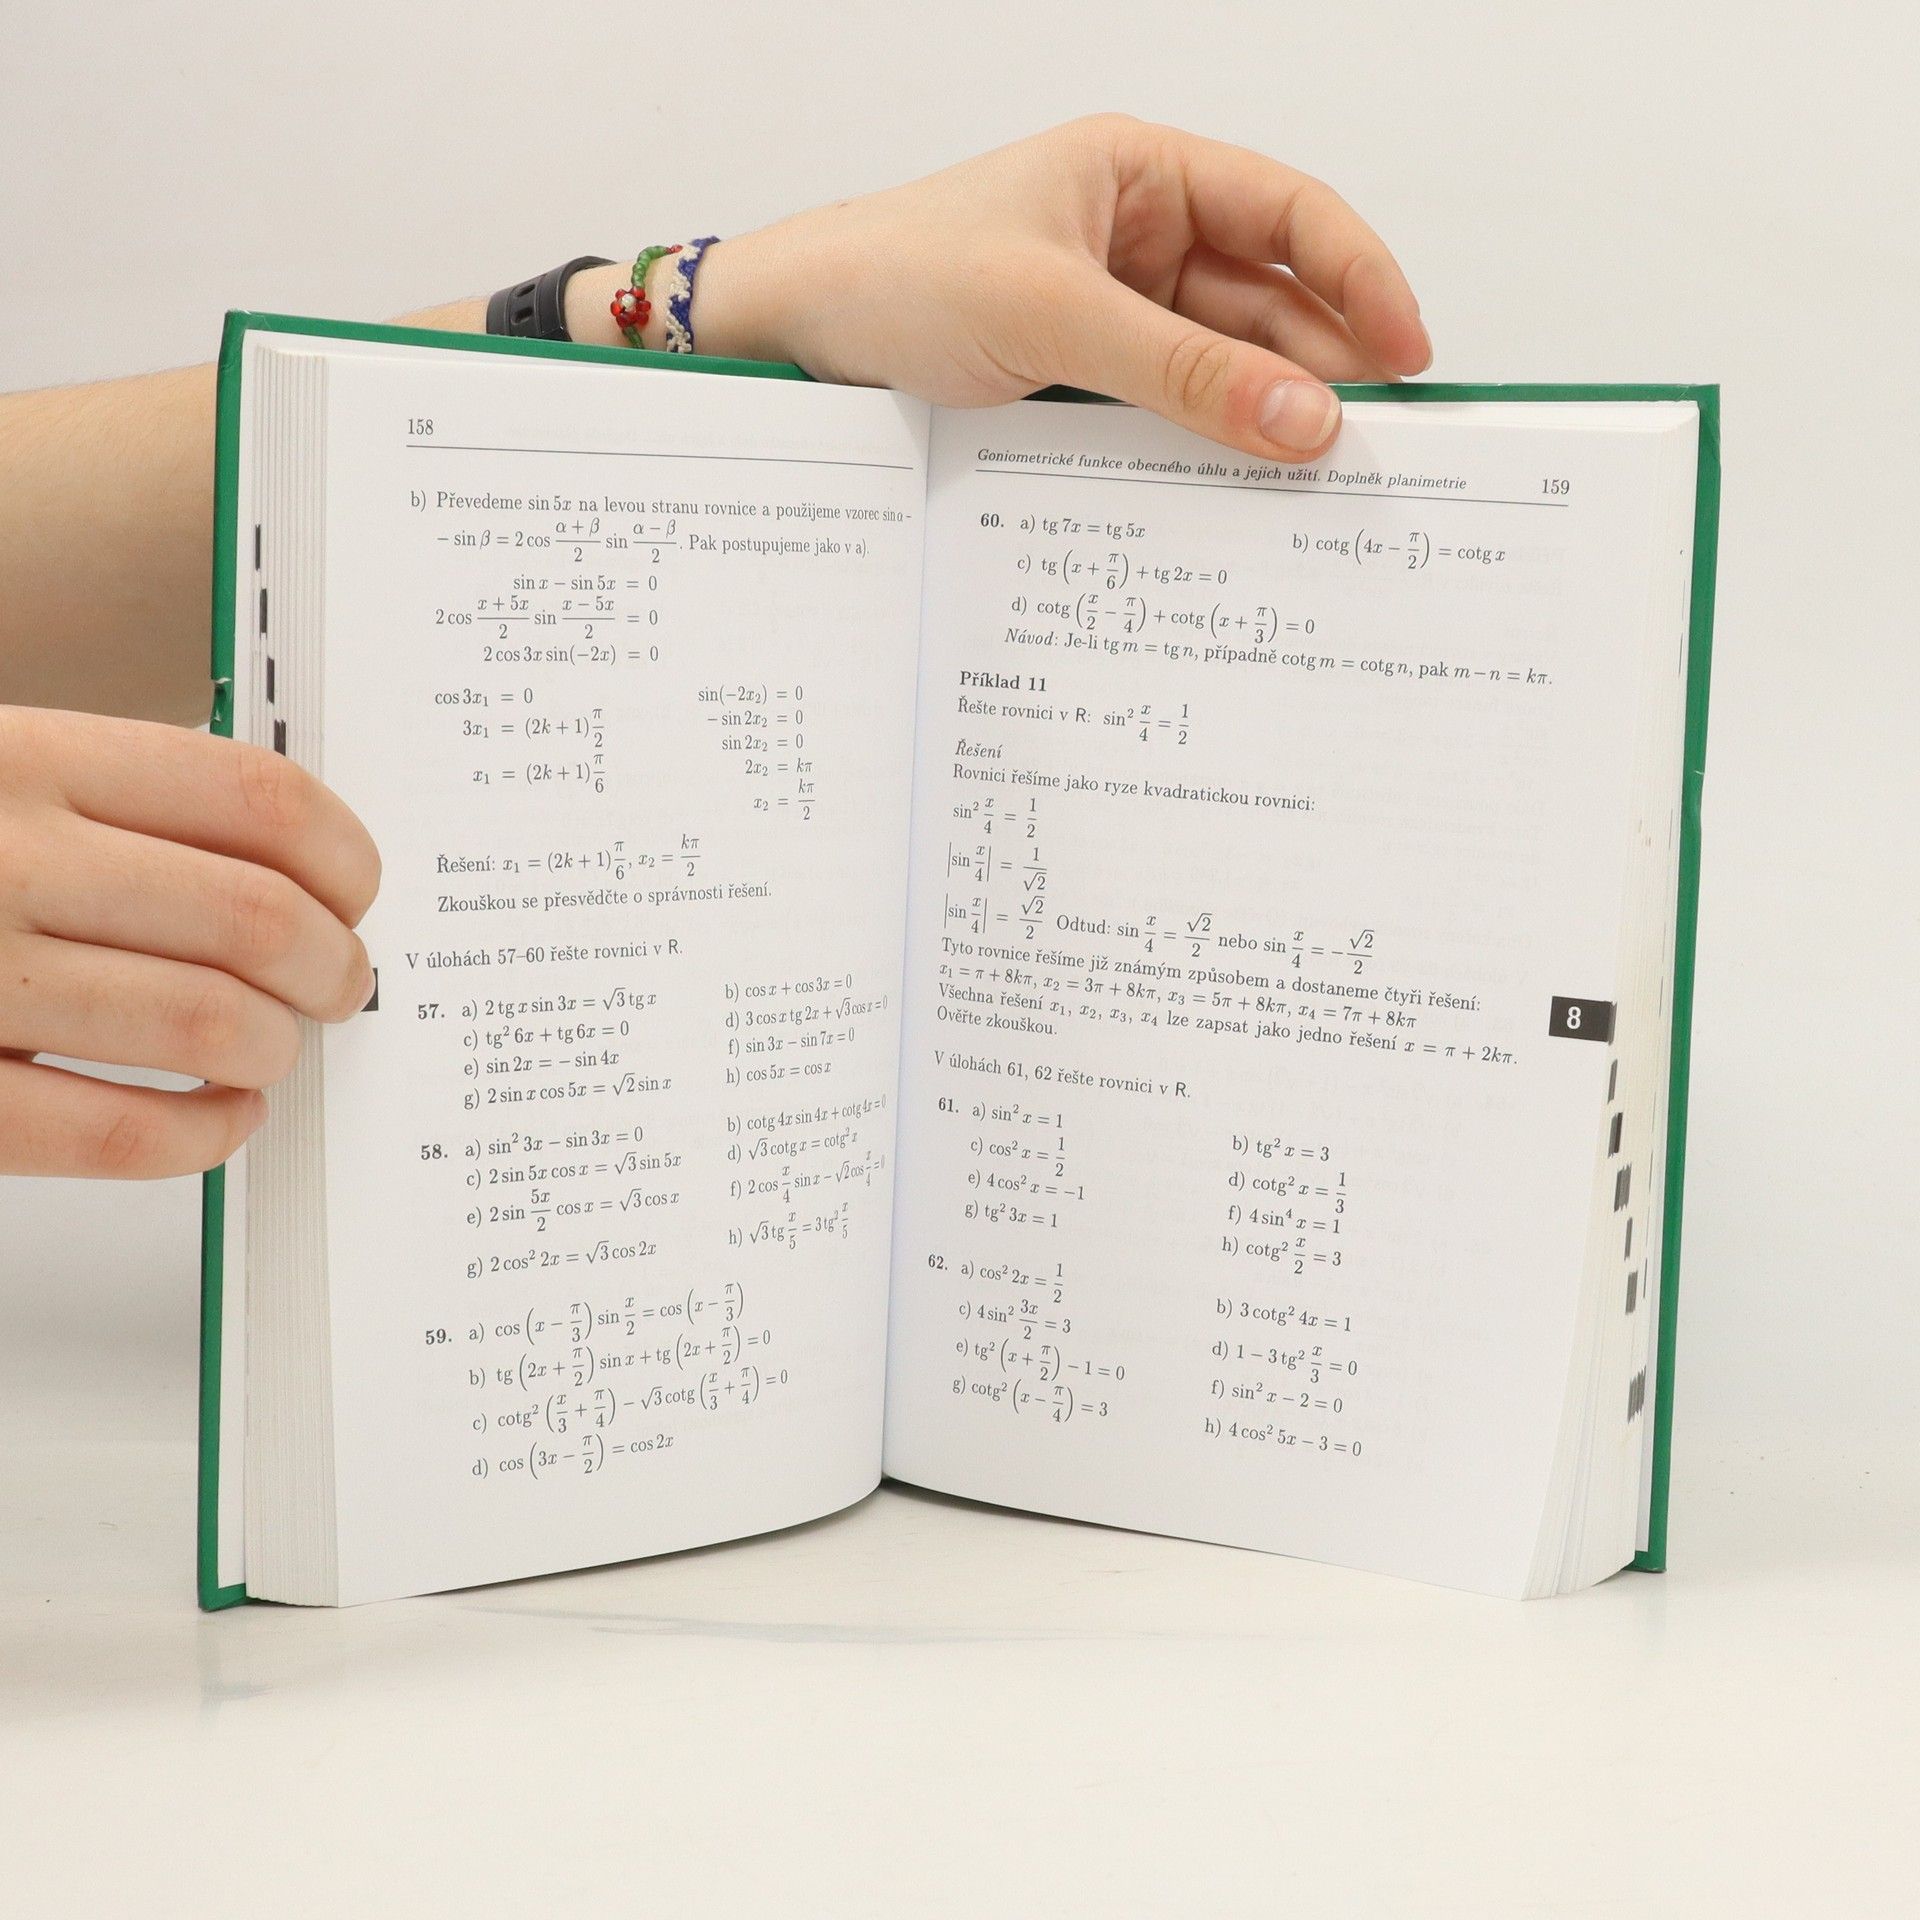 158
b) Převedeme sin 5x na levou stranu rovnice a použijeme vzorec sin α −
− sin β = 2 cos (α + β)/2 sin (α − β)/2. Pak postupujeme jako v a).
sin x − sin 5x = 0
2 cos (x + 5x)/2 sin (x − 5x)/2 = 0
2 cos 3x sin(−2x) = 0
cos 3x₁ = 0
3x₁ = (2k + 1)π/2
x₁ = (2k + 1)π/6
sin(−2x₂) = 0
− sin 2x₂ = 0
sin 2x₂ = 0
2x₂ = kπ
x₂ = kπ/2
Řešení: x₁ = (2k + 1)π/6, x₂ = kπ/2
Zkouškou se přesvědčte o správnosti řešení.
V úlohách 57–60 řešte rovnici v R.
57. a) 2 tg x sin 3x = √3 tg x b) cos x + cos 3x = 0
c) tg² 6x + tg 6x = 0 d) 3 cos x tg 2x + √3 cos x = 0
e) sin 2x = − sin 4x f) sin 3x − sin 7x = 0
g) 2 sin x cos 5x = √2 sin x h) cos 5x = cos x
58. a) sin² 3x − sin 3x = 0 b) cotg 4x sin 4x + cotg 4x = 0
c) 2 sin 5x cos x = √3 sin 5x d) √3 cotg x = cotg² x
e) 2 sin 5x/2 cos x = √3 cos x f) 2 cos x/4 sin x − √2 cos x/4 = 0
g) 2 cos² 2x = √3 cos 2x h) √3 tg x/5 = 3 tg² x/5
59. a) cos (x − π/3) sin x/2 = cos (x − π/3)
b) tg (2x + π/2) sin x + tg (2x + π/2) = 0
c) cotg² (x/3 + π/4) − √3 cotg (x/3 + π/4) = 0
d) cos (3x − π/2) = cos 2x
Goniometrické funkce obecného úhlu a jejich užití. Doplněk planimetrie 159
60. a) tg 7x = tg 5x b) cotg (4x − π/2) = cotg x
c) tg (x + π/6) + tg 2x = 0
d) cotg (x/2 − π/4) + cotg (x + π/3) = 0
Návod: Je-li tg m = tg n, případně cotg m = cotg n, pak m − n = kπ.
Příklad 11
Řešte rovnici v R: sin² x/4 = 1/2
Řešení
Rovnici řešíme jako ryze kvadratickou rovnici:
sin² x/4 = 1/2
|sin x/4| = 1/√2
|sin x/4| = √2/2 Odtud: sin x/4 = √2/2 nebo sin x/4 = −√2/2
Tyto rovnice řešíme již známým způsobem a dostaneme čtyři řešení:
x₁ = π + 8kπ, x₂ = 3π + 8kπ, x₃ = 5π + 8kπ, x₄ = 7π + 8kπ
Všechna řešení x₁, x₂, x₃, x₄ lze zapsat jako jedno řešení x = π + 2kπ.
Ověřte zkouškou.
8
V úlohách 61, 62 řešte rovnici v R.
61. a) sin² x = 1 b) tg² x = 3
c) cos² x = 1/2 d) cotg² x = 1/3
e) 4 cos² x = −1 f) 4 sin⁴ x = 1
g) tg² 3x = 1 h) cotg² x/2 = 3
62. a) cos² 2x = 1/2 b) 3 cotg² 4x = 1
c) 4 sin² 3x/2 = 3 d) 1 − 3 tg² x/3 = 0
e) tg² (x + π/2) − 1 = 0 f) sin² x − 2 = 0
g) cotg² (x − π/4) = 3 h) 4 cos² 5x − 3 = 0